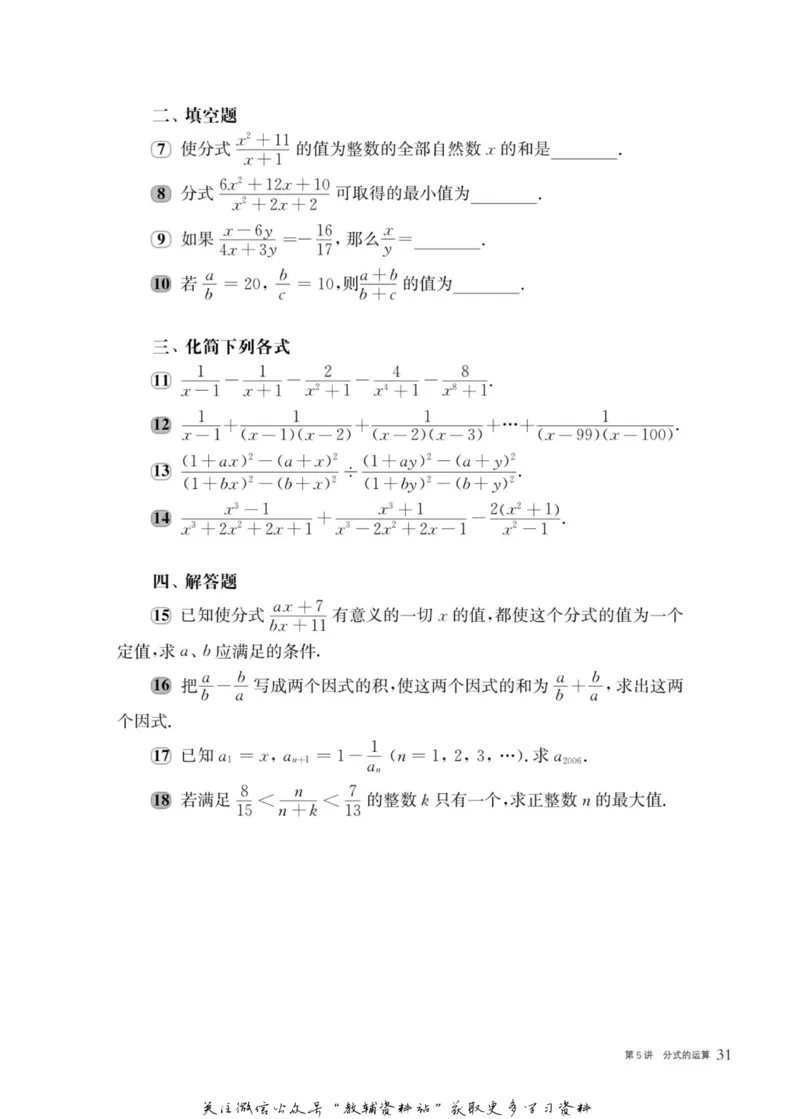 二、填空题
7 使分式 \frac{x^2+11}{x+1} 的值为整数的全部自然数 x 的和是________.
8 分式 \frac{6x^2+12x+10}{x^2+2x+2} 可取得的最小值为________.
9 如果 \frac{x-6y}{4x+3y}=-\frac{16}{17}, 那么 \frac{x}{y}=________.
10 若 \frac{a}{b}=20, \frac{b}{c}=10,则\frac{a+b}{b+c} 的值为________.
三、化简下列各式
11 \frac{1}{x-1}-\frac{1}{x+1}-\frac{2}{x^2+1}-\frac{4}{x^4+1}-\frac{8}{x^8+1}.
12 \frac{1}{x-1}+\frac{1}{(x-1)(x-2)}+\frac{1}{(x-2)(x-3)}+…+\frac{1}{(x-99)(x-100)}.
13 \frac{(1+ax)^2-(a+x)^2}{(1+bx)^2-(b+x)^2}÷\frac{(1+ay)^2-(a+y)^2}{(1+by)^2-(b+y)^2}.
14 \frac{x^3-1}{x^3+2x^2+2x+1}+\frac{x^3+1}{x^3-2x^2+2x-1}-\frac{2(x^2+1)}{x^2-1}.
四、解答题
15 已知使分式 \frac{ax+7}{bx+11} 有意义的一切 x 的值,都使这个分式的值为一个
定值,求 a、b 应满足的条件.
16 把 \frac{a}{b}-\frac{b}{a} 写成两个因式的积,使这两个因式的和为 \frac{a}{b}+\frac{b}{a}, 求出这两
个因式.
17 已知 a_1=x, a_{n+1}=1-\frac{1}{a_n} (n=1, 2, 3, …).求 a_{2006}.
18 若满足 \frac{8}{15}<\frac{n}{n+k}<\frac{7}{13} 的整数 k 只有一个,求正整数 n 的最大值.
第5讲 分式的运算 31
关注微信公众号“教辅资料站”获取更多学习资料